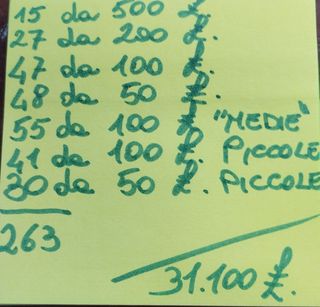 15 da 500 £.
27 da 200 £.
47 da 100 £.
48 da 50 £.
55 da 100 £. "MEDIE"
41 da 100 £. PICCOLE
30 da 50 £. PICCOLE
263
31.100 £.